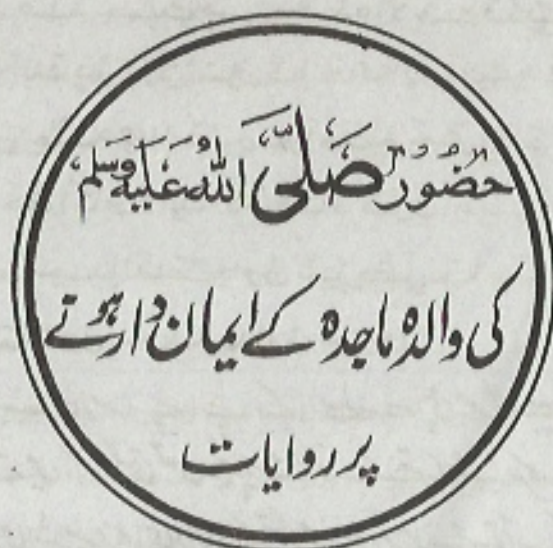 حضور صَلَّی اللہُ عَلَیْہِ وَسَلَّم
کی والدہ ماجدہ کے ایمان دار ہوتے
پر روایات